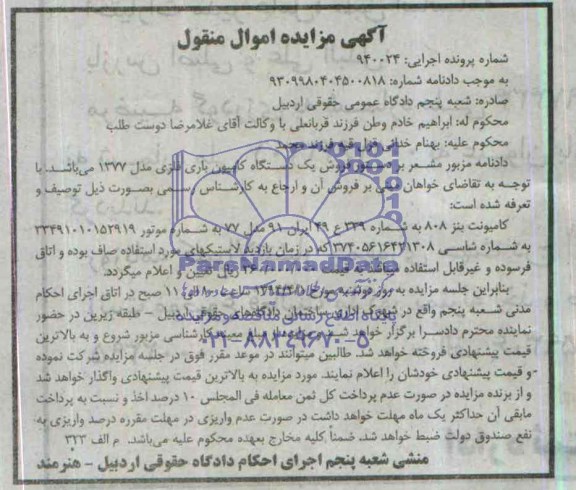 آگهی مزایده اموال منقول
شماره پرونده اجرایی: ۹۴۰۰۲۴
به موجب دادنامه شماره: ۹۳۰۹۹۸۰۴۰۴۵۰۰۸۱۸
صادره: شعبه پنجم دادگاه عمومی حقوقی اردبیل
محکوم له: ابراهیم خادم وطن فرزند قربانعلی با وکالت آقای غلامرضا دوست طلب
محکوم علیه: بهنام خدائی فرزند محمد
دادنامه مزبور مشعر بر دستور فروش یک دستگاه کامیون باری فلزی مدل ۱۳۷۷ می‌باشد. با
توجه به تقاضای خواهان مبنی بر فروش آن و ارجاع به کارشناس رسمی بصورت ذیل توصیف و
تعرفه شده است:
کامیونت بنز ۸۰۸ به شماره ۳۳۹ ع ۴۹ ایران ۹۱ مدل ۷۷ به شماره موتور ۳۳۴۹۱۰۱۰۱۵۲۹۱۹
به شماره شاسی ۳۷۴۰۵۶۱۶۴۲۱۳۰۸ که در زمان بازدید لاستیکهای مورد استفاده صاف بوده و اتاق
فرسوده و غیرقابل استفاده ریال تعیین و اعلام میگردد.
بنابراین جلسه مزایده به روز مورخ ساعت ۱۱ صبح در اتاق اجرای احکام
مدنی شعبه پنجم واقع در شهرک اداری ساختمان دادگاههای حقوقی اردبیل - طبقه زیرین در حضور
نماینده محترم دادسرا برگزار خواهد شد کارشناسی مزبور شروع و به بالاترین
قیمت پیشنهادی فروخته خواهد شد. طالبین میتوانند در موعد مقرر فوق در جلسه مزایده شرکت نموده
و قیمت پیشنهادی خودشان را اعلام نمایند. مورد مزایده به بالاترین قیمت پیشنهادی واگذار خواهد شد
و از برنده مزایده در صورت عدم پرداخت کل ثمن معامله فی المجلس ۱۰ درصد اخذ و نسبت به پرداخت
مابقی آن حداکثر یک ماه مهلت خواهد داشت در صورت عدم واریزی در مهلت مقرره درصد واریزی به
نفع صندوق دولت ضبط خواهد شد. ضمناً کلیه مخارج بعهده محکوم علیه می‌باشد. م الف ۳۲۳
منشی شعبه پنجم اجرای احکام دادگاه حقوقی اردبیل - هنرمند
ParsNamadData
۰۲۱-۸۸۳۴۹۶۷۰-۵